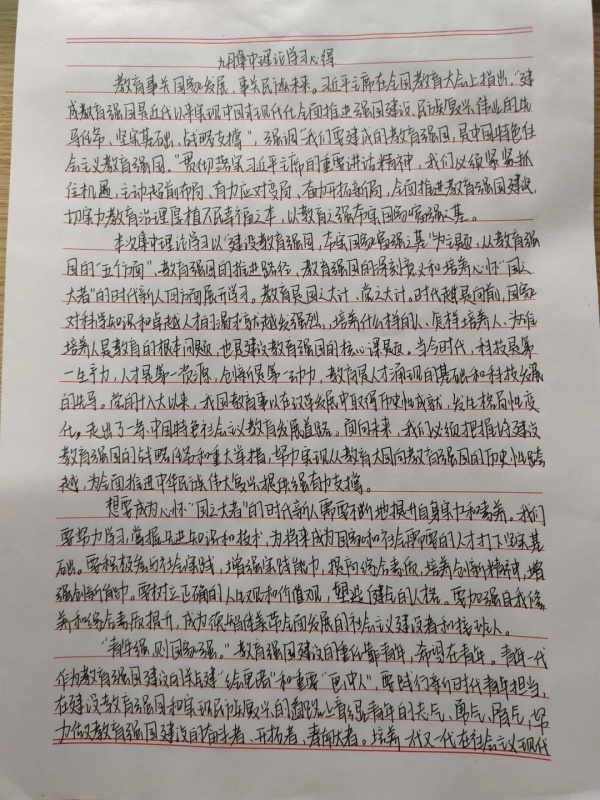 九月集中理论学习心得
教育事关国家发展、事关民族未来。习近平主席在全国教育大会上指出，“建
成教育强国是近代以来实现中国式现代化全面推进强国建设、民族复兴伟业的先
导任务、坚实基础、战略支撑”，强调“我们要建成的教育强国，是中国特色社
会主义教育强国。”贯彻落实习近平主席的重要讲话精神，我们必须紧紧抓
住机遇，主动超前布局、有力应对变局、奋力开拓新局，全面推进教育强国建设，
切实办教育治理厚植人民幸福之本，以教育之强夯实国家富强之基。
本次集中理论学习以“建设教育强国，夯实国家富强之基”为主题，从教育强
国的“五个方面”、教育强国的推进路径、教育强国的深刻意义和培养心怀“国之
大者”的时代新人四方面展开学习。教育是国之大计、党之大计。时代越是向前，国家
对科学知识和卓越人才的渴求就越发强烈，培养什么样的人、怎样培养人、为谁
培养人是教育的根本问题，也是建设教育强国的核心课题。当今时代，科技是第
一生产力，人才是第一资源，创新是第一动力，教育是人才涌现的基础和科技发展
的先导。党的十八大以来，我国教育事业在改革发展中取得历史性成就，发生格局性变
化，走出了一条中国特色社会主义教育发展道路。面向未来，我们必须把握好建设
教育强国的战略任务和重大举措，努力实现从教育大国向教育强国的历史性跨
越，为全面推进中华民族伟大复兴提供强有力支撑。
想要成为心怀“国之大者”的时代新人需要不断地提升自身实力和素养。我们
要努力学习，掌握先进知识和技术，为将来成为国家和社会需要的人才打下坚实基
础。要积极参与社会实践，增强实践能力，提高综合素质，培养创新精神，增
强创新能力。要树立正确的人生观和价值观，塑造健全的人格。要加强自我修
养和综合素质提升，成为德智体美劳全面发展的社会主义建设者和接班人。
“青年强，则国家强。”教育强国建设的重任靠青年，希望在青年。青年一代
作为教育强国建设的关键“绘画者”和重要“画中人”，要践行新时代青年担当，
在建设教育强国和实现民族复兴的道路上彰显青年的志气、勇气、骨气，努
力做教育强国建设的奋斗者、开拓者、奉献者。培养一代又一代在社会主义现代